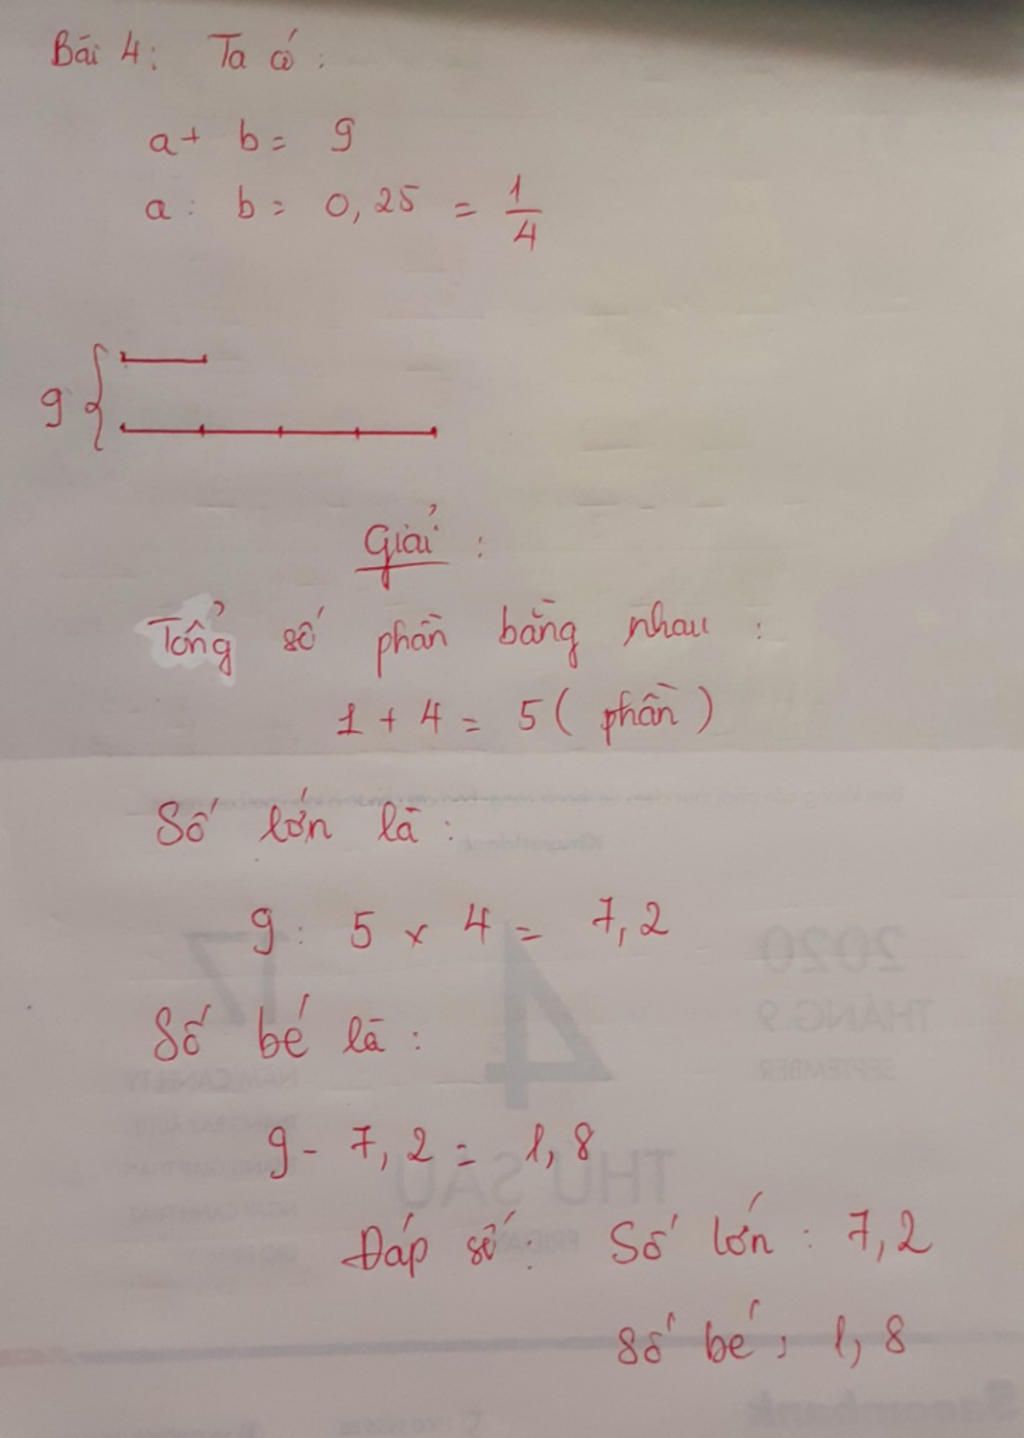 Bài 4: Ta có:
a + b = 9
a : b = 0,25 = 1/4
9
Giải:
Tổng số phần bằng nhau:
1 + 4 = 5 (phần)
Số lớn là:
9 : 5 x 4 = 7,2
2020
THÁNG 9
SEPTEMBER
4
17
Số bé là:
9 - 7,2 = 1,8
THỨ SÁU
FRIDAY
Đáp số: Số lớn: 7,2
Số bé: 1,8
Sacombank